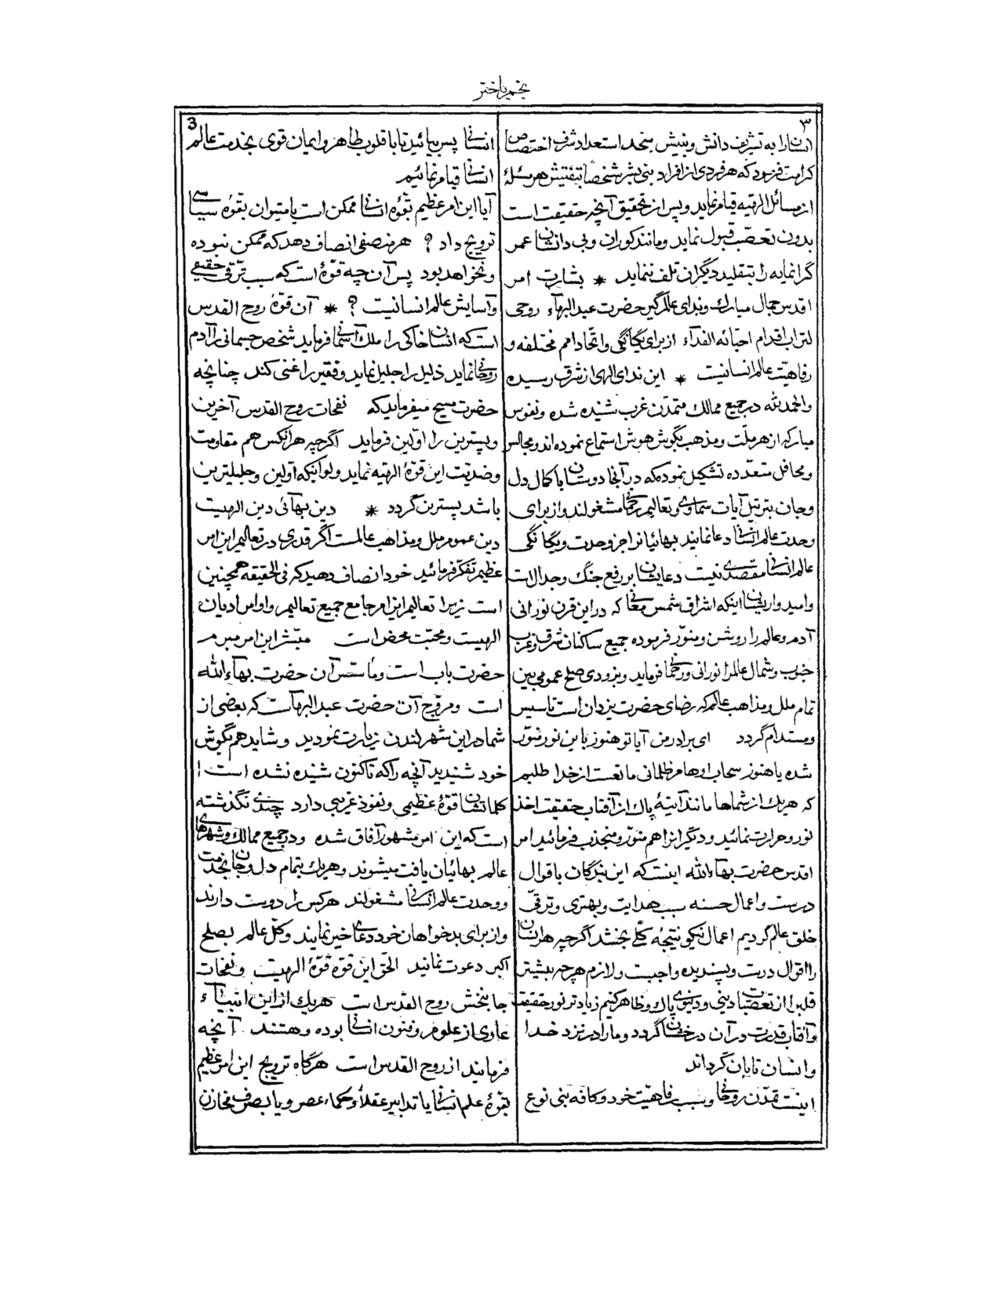 نجم باختر
۳
انسان را به تشریف دانش و بینش بیحد استعداد شرف اختصاص
کرامت فرمود که هر فردی از افراد بنی بشر شخصاً بتفتیش هر مسئلهٔ
از مسائل الهیه قیام نماید و پس از تحقیق آنچه حقیقت است
بدون تعصّب قبول نماید و مانند کوران و بی دانشان عمر
گرانمایه را بتقلید دیگران تلف ننماید * بشارت امر
اقدس جمال مبارک و ندای عالمگیر حضرت عبدالبهآء روحی
لتراب اقدام احبّائه الفدآء از برای یگانگی و اتّحاد امم مختلفه و
رفاهیّت عالم انسانیست * این ندای الهی از شرق رسیده
والحمدلله در جمیع ممالک متمدّن غرب شنیده شده و نفوس
مبارکه از هر ملّت و مذهب بگوش هوش استماع نموده اند و مجالس
و محافل متعدّده تشکیل نموده که در آنجا دوستان با کمال دل
و جان بترتیل آیات سماوی و تعالیم رحمانی مشغولند و از برای
وحدت عالم انسانی دعا نمایند بهائیانرا جز وحدت و یگانگی
عالم انسانی مقصدی نیست دعایشان بر رفع جنگ و جدالست
و امیدواریشان اینکه اشراق شمس معانی که در این قرن نورانی
آدم و عالم را روشن و منوّر فرموده جمیع ساکنان شرق و غرب
جنوب و شمال عالم را نورانی و رحمانی فرماید و بزودی صلح عمومی بین
تمام ملل و مذاهب عالم که رضای حضرت یزدان است تاسیس
و مستدام گردد ای برادر من آیا تو هنوز با این نور منوّر
شده یا هنوز سحاب اوهام ظلمانی مانعست از خدا طلبیم
که هر یک از شماها مانند آینهٔ پاک از آفتاب حقیقت اخذ
نور و حرارت نمائید و دیگرانرا هم منوّر و منجذب فرمائید امر
اقدس حضرت بهاءالله اینست که این بندگان با قوال
درست و اعمال حسنه سبب هدایت و بهتری و ترقّی
خلق عالم گردیم اعمال نیکو نتیجهٔ کلّی بخشد اگرچه هر انسان
را اقوال درست و پسندیده واجبست و لازم هر چه بیشتر
قلبرا از تعصّبات دینی و دنیوی پاک و طاهر کنیم زیادتر نور حقیقت
و آفتاب قدرت در آن درخشان گردد و ما را در نزد خدا
و انسان تابان گرداند
اینست تمدّن روحانی و سبب رفاهیّت خود و کافهٔ بنی نوع
3
انسانی پس بیائید تا با قلوب طاهر و ایمان قوی بخدمت عالم
انسانی قیام نمائیم
آیا این امر عظیم بقوّهٔ انسانی ممکن است یا میتوان بقوهٔ سیاسی
ترویج داد ؟ هر منصفی انصاف دهد که ممکن نبوده
و نخواهد بود پس آن چه قوّهٔ است که سبب ترقی حقیقی
و آسایش عالم انسانیست ؟ * آن قوّهٔ روح القدس
است که انسان خاکی را ملک آسمانی فرماید شخص جسمانی را آدم
روحانی نماید ذلیل را جلیل نماید و فقیر را غنی کند چنانچه
حضرت مسیح میفرماید که نفحات روح القدس آخرین
و پسترین را اوّلین فرماید اگرچه هر انکس هم مقاومت
و ضدّیت این قوّهٔ الهیّه نماید ولو اینکه اولین و جلیلترین
باشد پسترین گردد * دین بهائی دین الهیست
دین عموم ملل و مذاهب عالمست اگر قدری در تعالیم این امر
عظیم تفکّر فرمائید خود انصاف دهید که فی الحقیقه همچنین
است زیرا تعالیم این امر جامع جمیع تعالیم و اوامر ادیان
الهیست و محبّت محض است مبشّر این امر مبرم
حضرت باب است و مأسّس آن حضرت بهاءالله
است و مروّج آن حضرت عبدالبهاست که بعضی از
شما در این شهر لندن زیارت نمودید و شاید هم بگوش
خود شنیدید آنچه را که تاکنون شنیده نشده است !
کلماتشان قوّهٔ عظیمی و نفوذ غریبی دارد چندی نگذشته
است که این امر مشهور آفاق شده و در جمیع ممالک و شهرهای
عالم بهائیان یافت میشوند و هر یک بتمام دل و جان بخدمت
و وحدت عالم انسانی مشغولند هر کس را دوست دارند
و از برای بدخواهان خود دعای خیر نمایند و کلّ عالم بصلح
اکبر دعوت نمایند الحق این قوه قوّهٔ الهیست و نفحات
جانبخش روح القدس است هر یک از این انبیآء
عاری از علوم و فنون انسانی بوده و هستند آنچه
فرمایند از روح القدس است هر گاه ترویج این امر عظیم
بقوّهٔ علم انسانی یا تدابیر عقلاء و حکماء عصر و یا بصرف مخازن